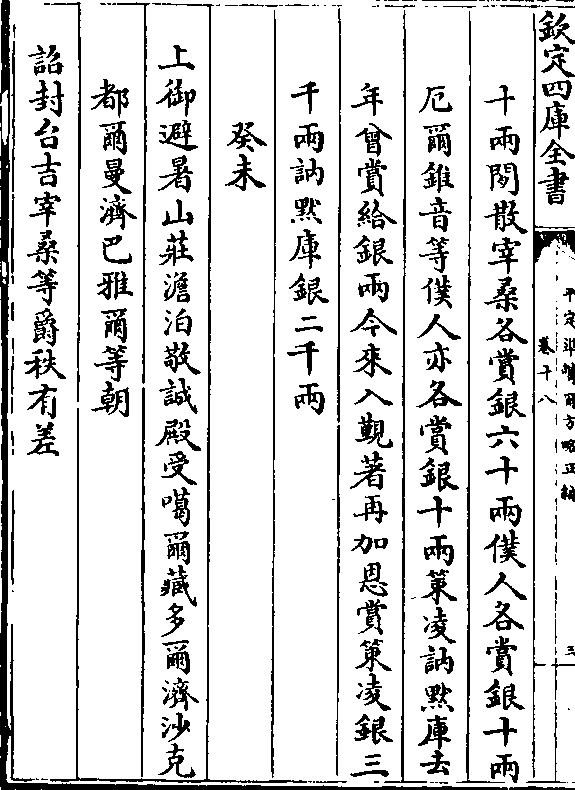 欽定四庫全書
平定準噶爾方略正編
卷十八
三
十兩閒散宰桑各賞銀六十兩僕人各賞銀十兩
厄爾錐音等僕人亦各賞銀十兩策凌訥黙庫去
年曾賞給銀兩今來入覲著再加恩賞策凌銀三
千兩訥黙庫銀二千兩
癸未
上御避暑山莊澹泊敬誠殿受噶爾藏多爾濟沙克
都爾曼濟巴雅爾等朝
詔封台吉宰桑等爵秩有差